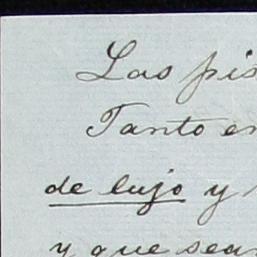 Las pis
Tanto en
de lujo y
y que sea